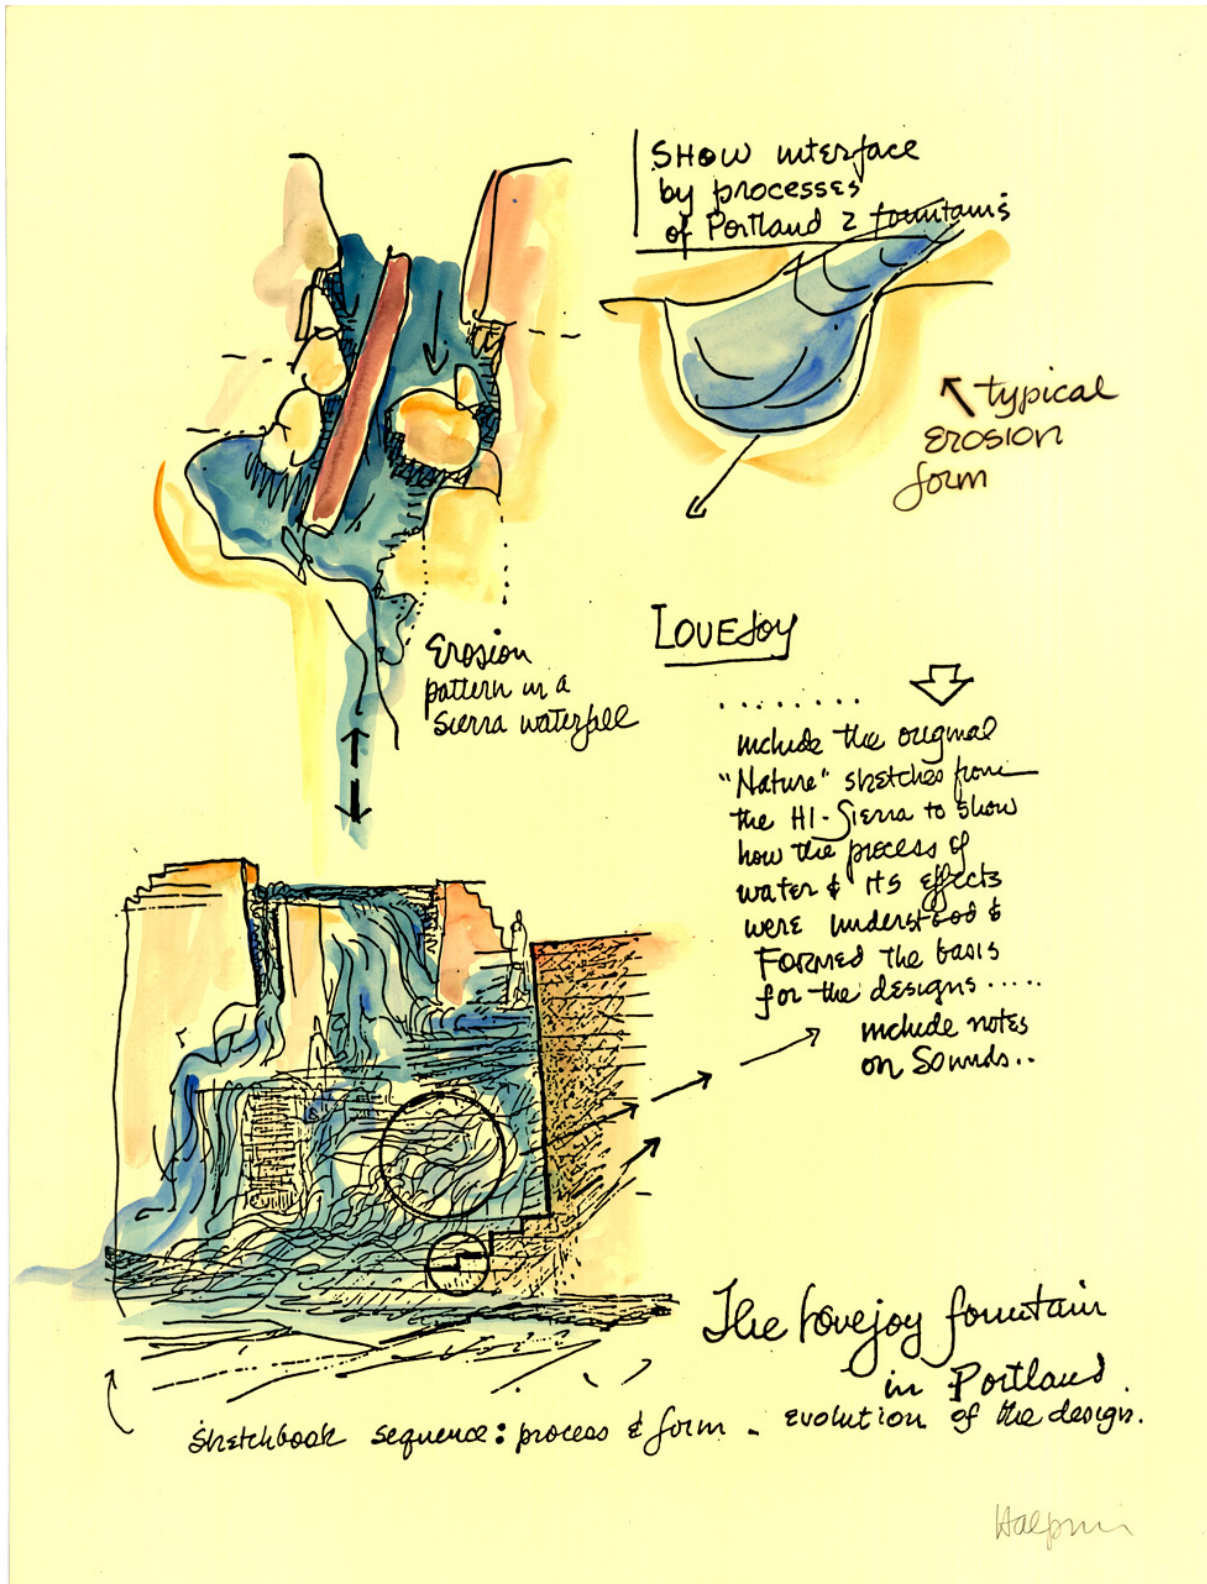 SHOW interface
by processes
of Portland 2 fountains
typical
EROSION
form
Erosion
pattern in a
Sierra waterfall
LOVEJOY
include the original
"Nature" sketches from
the HI-Sierra to show
how the process of
water & its effects
were understood &
FORMED the basis
for the designs.....
include notes
on Sounds..
The Lovejoy fountain
in Portland.
sketchbook sequence: process & form - evolution of the design.
Halprin